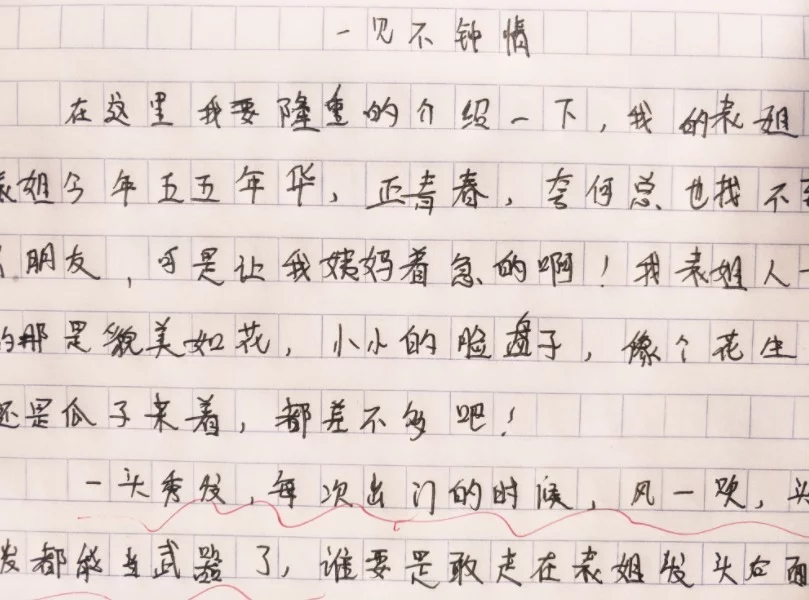 一见不钟情
在这里我要隆重的介绍一下，我的表姐
表姐今年五五年华，正青春，奈何总也找不
朋友，可是让我姨妈着急的啊！我表姐人
的那是貌美如花，小小的脸盘子，像个花生
还是瓜子来着，都差不多吧！
一头秀发，每次出门的时候，风一吹，头
发都能当武器了，谁要是敢走在表姐发头右面